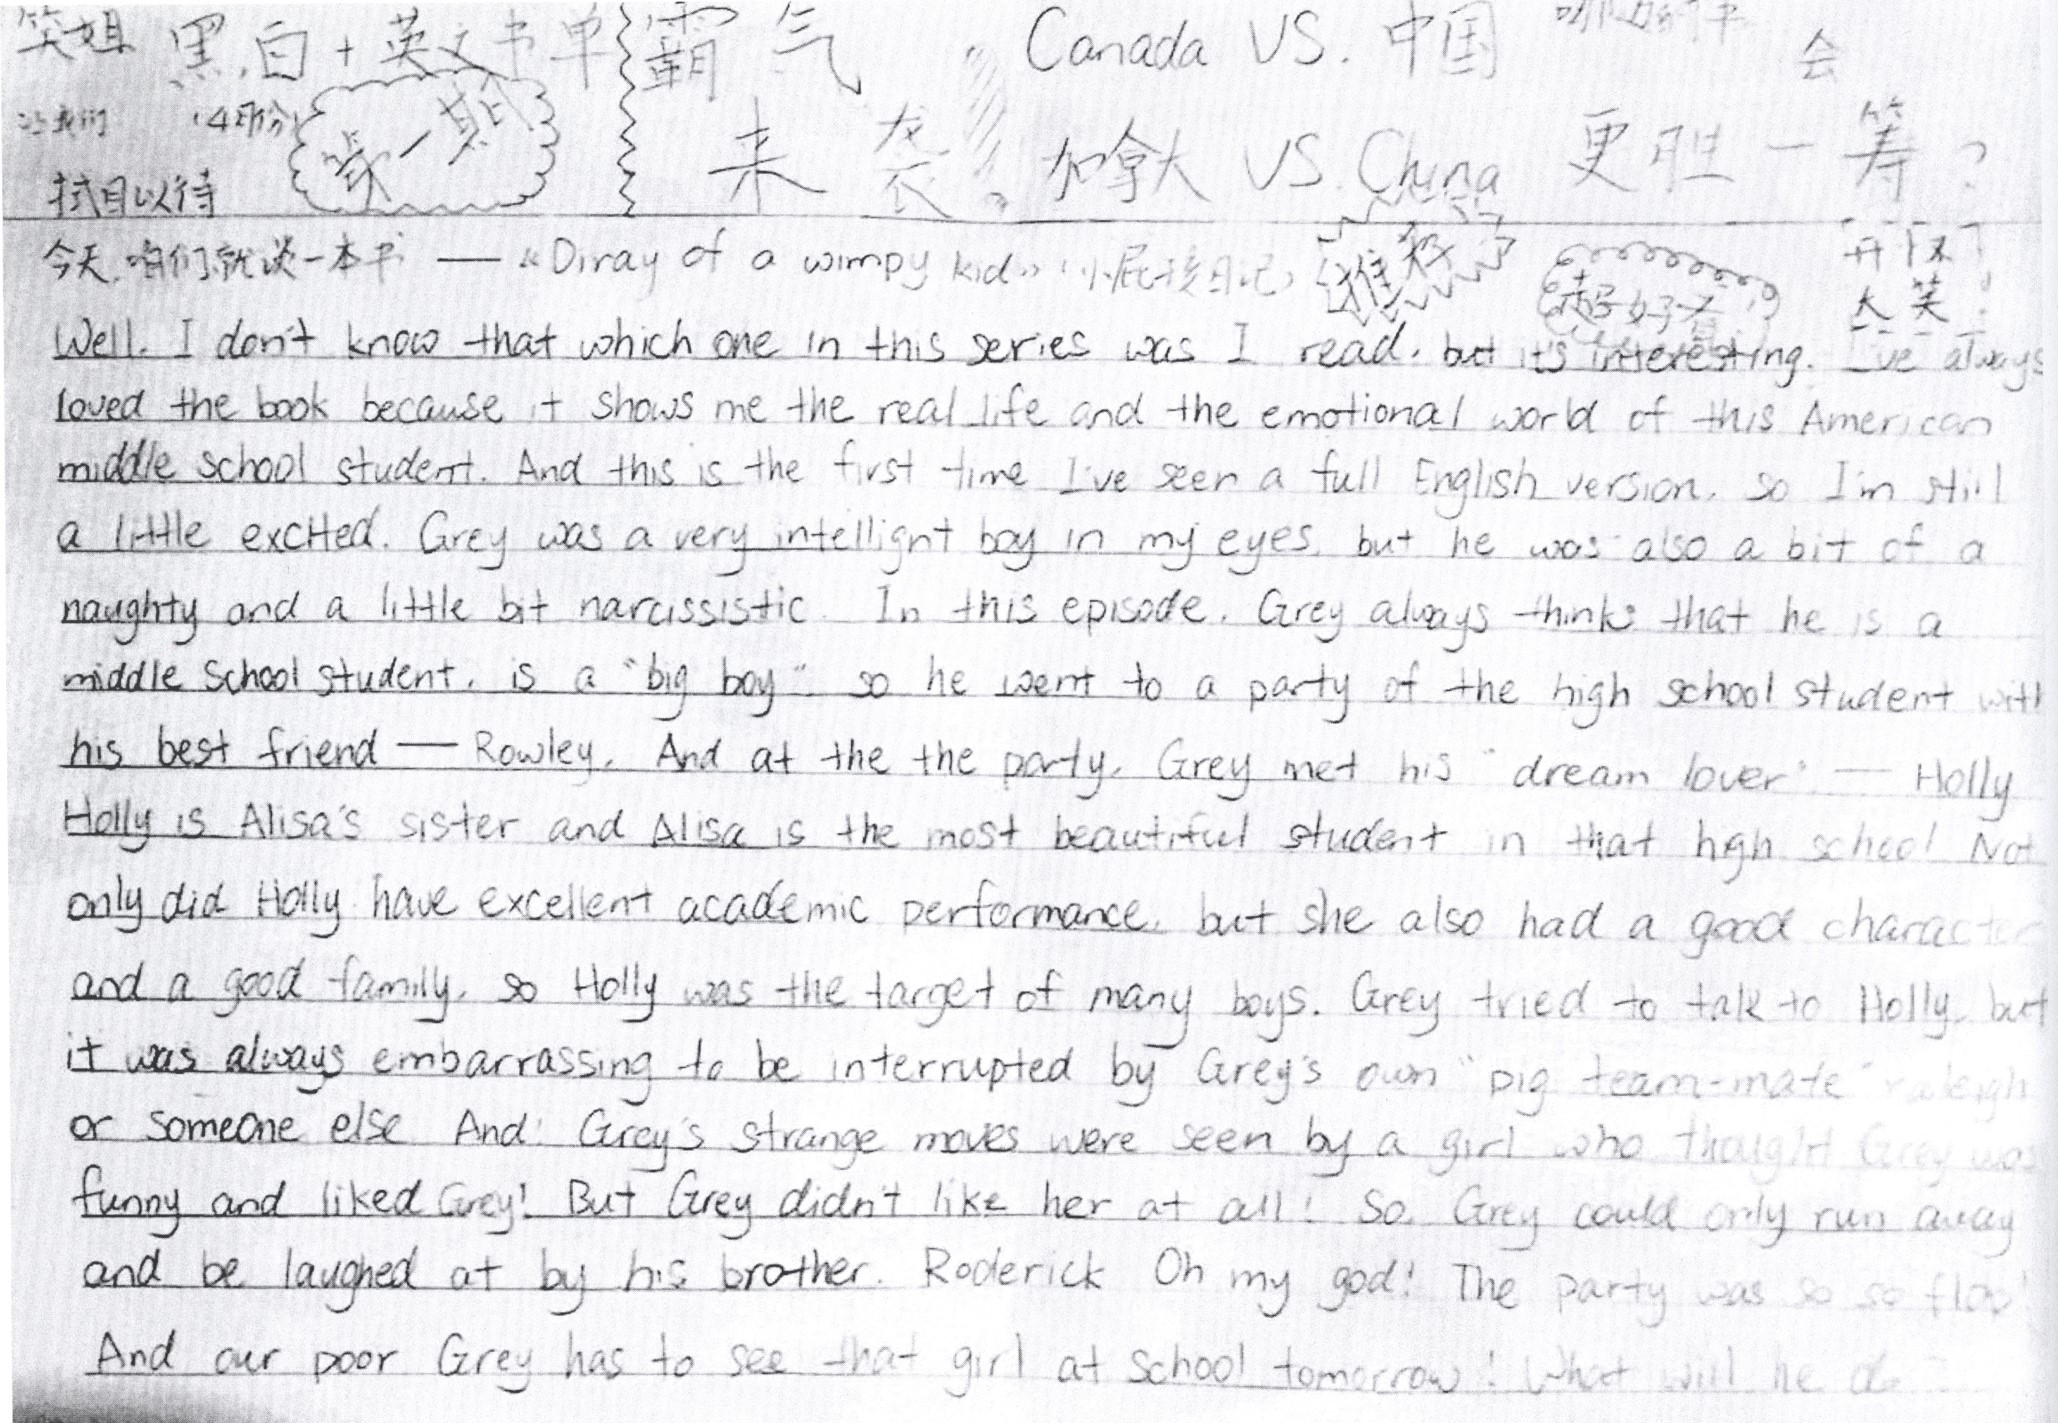 笑姐 黑白+英文书单 霸气 Canada VS. 中国 会
让我们 (4月份) 第一期 来袭。 加拿大 VS. China 更胜一筹?
拭目以待
今天,咱们就谈一本书 — 《Diray of a wimpy kid》(小屁孩日记) 推荐 超好看 开怀大笑!
Well. I don't know that which one in this series was I read, but it's interesting. I've always
loved the book because it shows me the real life and the emotional world of this American
middle school student. And this is the first time I've seen a full English version, so I'm still
a little excited. Grey was a very intellignt boy in my eyes, but he was also a bit of a
naughty and a little bit narcissistic. In this episode, Grey always thinks that he is a
middle school student, is a "big boy", so he went to a party of the high school student with
his best friend — Rowley. And at the the party, Grey met his "dream lover" — Holly
Holly is Alisa's sister and Alisa is the most beautiful student in that high school Not
only did Holly have excellent academic performance, but she also had a good character
and a good family, so Holly was the target of many boys. Grey tried to talk to Holly, but
it was always embarrassing to be interrupted by Grey's own "pig team-mate" raleigh
or someone else And Grey's strange moves were seen by a girl who thought Grey was
funny and liked Grey! But Grey didn't like her at all! So, Grey could only run away
and be laughed at by his brother. Roderick Oh my god! The party was so so flop!
And our poor Grey has to see that girl at school tomorrow! What will he do